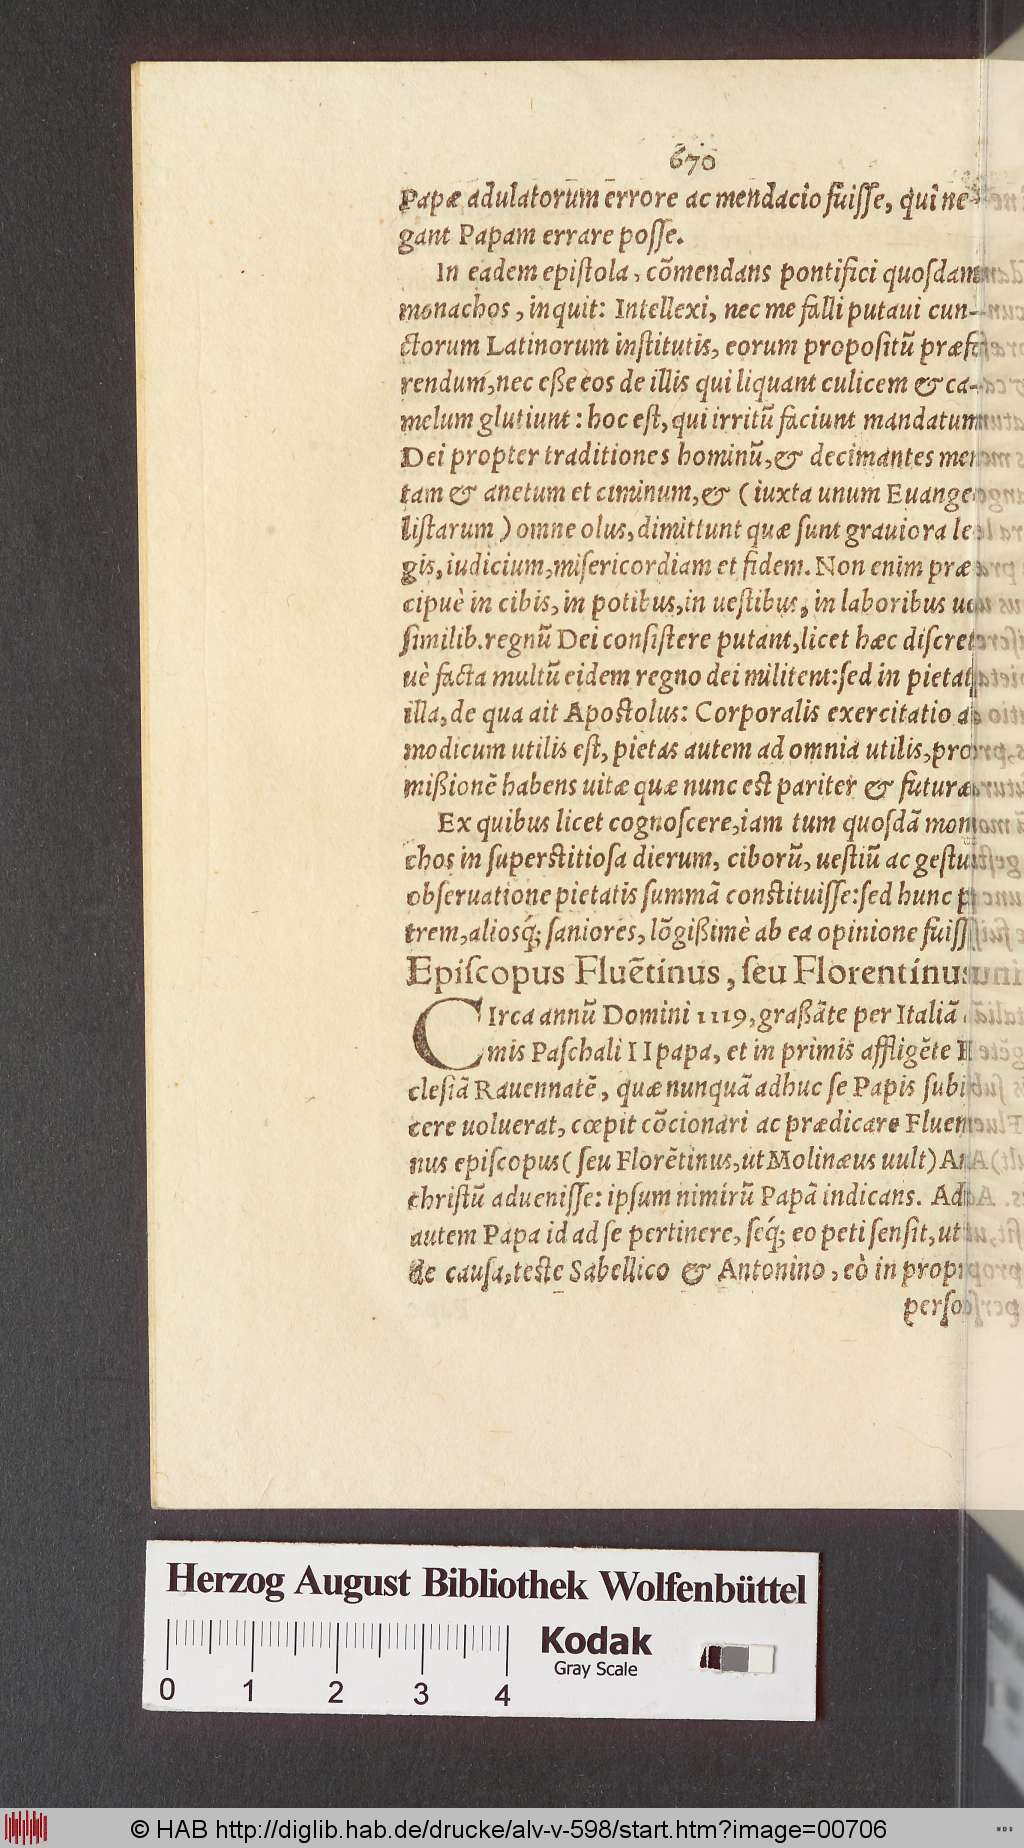 670
Papæ adulatorum errore ac mendacio fuiſſe, qui ne-
gant Papam errare poſſe.
In eadem epiſtola, cõmendans pontifici quoſdam
monachos, inquit: Intellexi, nec me falli putaui cun-
ctorum Latinorum inſtitutis, eorum propoſitũ præfe
rendum, nec eße eos de illis qui liquant culicem & ca-
melum glutiunt: hoc eſt, qui irritũ faciunt mandatum
Dei propter traditiones hominũ, & decimantes men
tam & anetum et ciminum, & (iuxta unum Euange
liſtarum) omne olus, dimittunt quæ ſunt grauiora le
gis, iudicium, miſericordiam et fidem. Non enim præ
cipuè in cibis, in potibus, in ueſtibus, in laboribus
ſimilib. regnũ Dei conſiſtere putant, licet hæc diſcret
uè facta multũ eidem regno dei militent: ſed in pietat
illa, de qua ait Apoſtolus: Corporalis exercitatio
modicum utilis eſt, pietas autem ad omnia utilis, pro
mißionẽ habens uitæ quæ nunc eſt pariter & futuræ
Ex quibus licet cognoſcere, iam tum quoſdã mona
chos in ſuperſtitioſa dierum, ciborũ, ueſtiũ ac geſtuũ
obſeruatione pietatis ſummã conſtituiſſe: ſed hunc
trem, aliosq́; ſaniores, lõgißimè ab ea opinione fuiſſ
Epiſcopus Fluẽtinus, ſeu Florentinus
CIrca annũ Domini 1119, graßãte per Italiã
mis Paſchali II papa, et in primis affligẽte
cleſiã Rauennatẽ, quæ nunquã adhuc ſe Papis ſubi
cere uoluerat, cœpit cõcionari ac prædicare Fluen
nus epiſcopus (ſeu Florẽtinus, ut Molinæus uult) An
chriſtũ adueniſſe: ipſum nimirũ Papã indicans. Ad
autem Papa id ad ſe pertinere, ſeq́; eo peti ſenſit, ut
de cauſa, teſte Sabellico & Antonino, eò in propr
perſo
Herzog August Bibliothek Wolfenbüttel
0 1 2 3 4
Kodak
Gray Scale
© HAB http://diglib.hab.de/drucke/alv-v-598/start.htm?image=00706